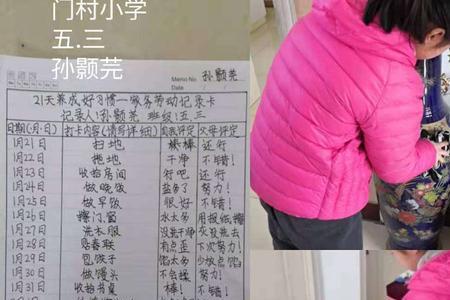 门村小学
五.三
孙颢芫
Memo No.
孙颢芫
Date
21天养成好习惯一家务劳动记录卡
记录人:孙颢芫 班级:五.三
日期(月·日) 打卡内容(请写详细) 自我评定 父母评定
1月21日 扫地 棒棒 还行
1月22日 拖地 干净 不错!
1月23日 收拾房间 好吧 还行
1月24日 做晚饭 盐多了 努力!
1月25日 做早饭 很好 不错!
1月26日 擦门.窗 水太多 用报纸擦
1月27日 洗衣服 没洗干净 灰没洗去
1月28日 贴春联 有点歪 下次努力!
1月29日 包饺子 馅太多 少放点馅
1月30日 做馒头 不会揉 努力!
1月31日 收拾书桌 棒! 不错!